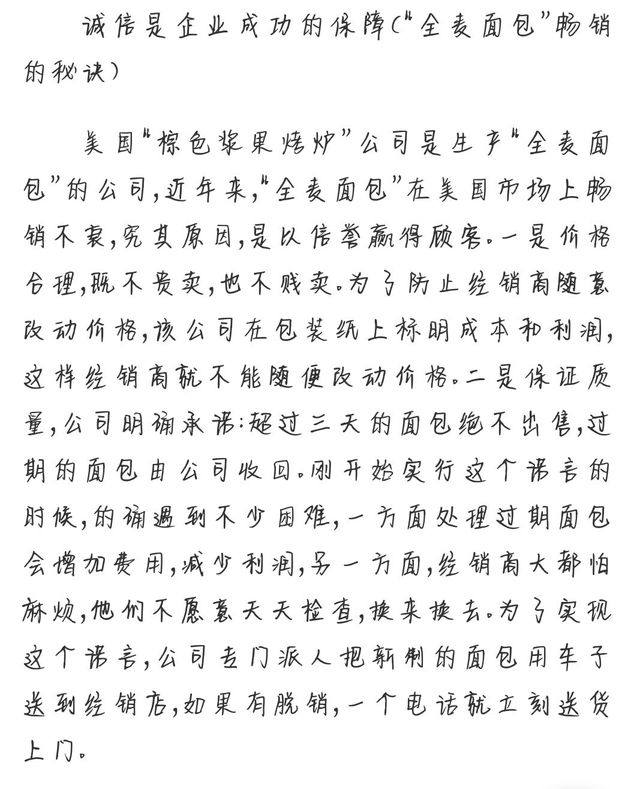 诚信是企业成功的保障(“全麦面包”畅销
的秘诀)
美国“棕色浆果烤炉”公司是生产“全麦面
包”的公司,近年来,“全麦面包”在美国市场上畅
销不衰,究其原因,是以信誉赢得顾客。一是价格
合理,既不贵卖,也不贱卖。为了防止经销商随意
改动价格,该公司在包装纸上标明成本和利润,
这样经销商就不能随便改动价格。二是保证质
量,公司明确承诺:超过三天的面包绝不出售,过
期的面包由公司收回。刚开始实行这个诺言的
时候,的确遇到不少困难,一方面处理过期面包
会增加费用,减少利润,另一方面,经销商大都怕
麻烦,他们不愿意天天检查,换来换去。为了实现
这个诺言,公司专门派人把新制的面包用车子
送到经销店,如果有脱销,一个电话就立刻送货
上门。